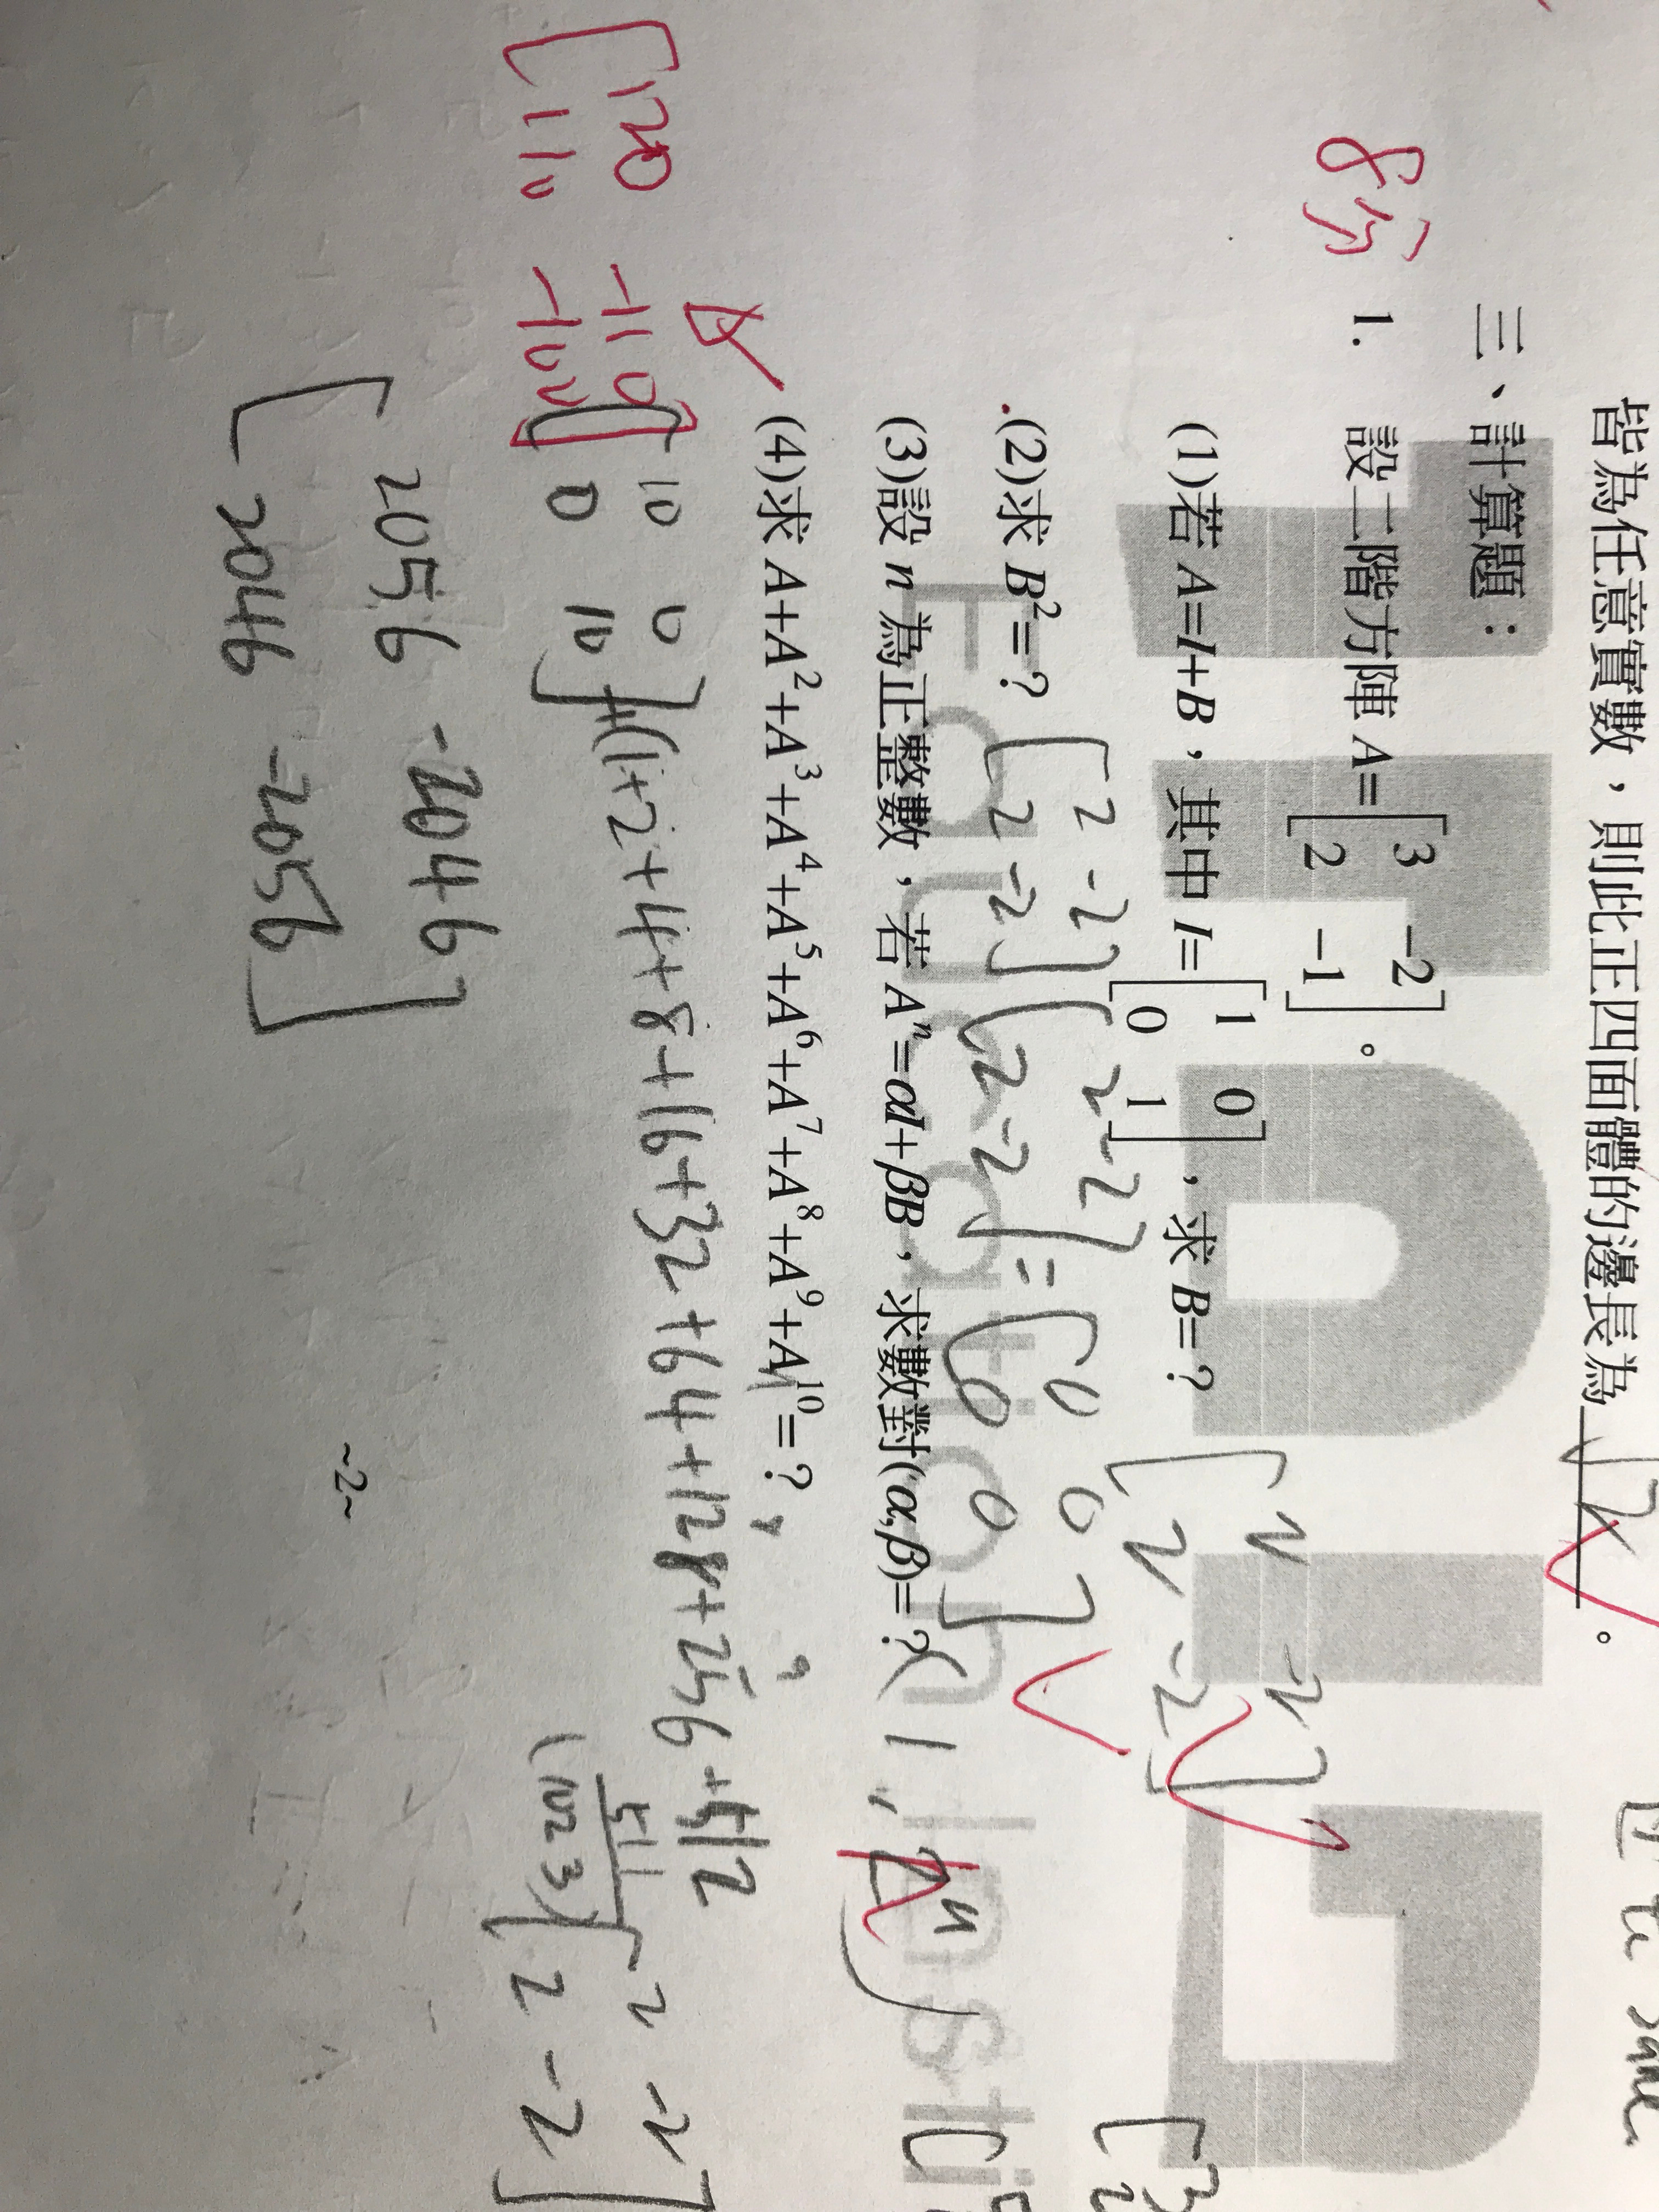 皆為任意實數，則此正四面體的邊長為 。
三、計算題：
8分
1. 設二階方陣 A=[3 -2
2 -1]。
(1)若 A=I+B，其中 I=[1 0
0 1]，求 B=？
[2 -2
2 -2]
.(2)求 B²=？
[2 -2
2 -2][2 -2
2 -2]=[0 0
0 0]
(3)設 n 為正整數，若 Aⁿ=αI+βB，求數對(α,β)=？(1,
(4)求 A+A²+A³+A⁴+A⁵+A⁶+A⁷+A⁸+A⁹+A¹⁰=？
[120 -110
110 -100]
[10 0
0 10]+(1+2+4+8+16+32+64+128+256+512
511
1023
[2 -2
2 -2]
[2056 -2046
2046 -2056]
~2~